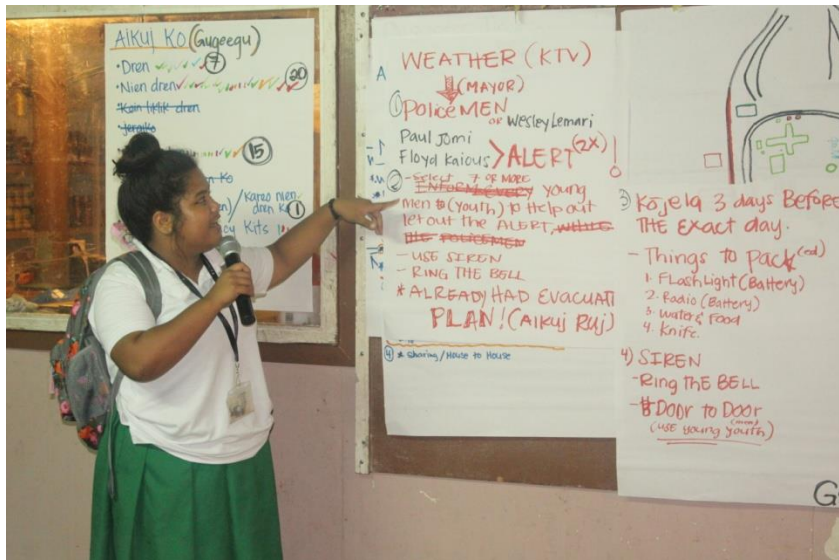 AIKUJ KO (Gugeegu)
• Dren 7
• Nien dren 20
• Koin liklik dren
• Jeraiko
15
Ko
/ Kareo nien
dren K 1
cy Kits
A
WEATHER (KTV)
(MAYOR)
① PoliceMEN
OR Wesley Lemari
Paul Jomi
Floyd Kaious > ALERT (2X) !
② - Select 7 OR MORE
INFORM EVERY young
men (youth) to Help out
let out the ALERT, WHILE
THE POLICEMEN
- USE SIREN
- RING THE BELL
* ALREADY HAD EVACUATI
PLAN! (Aikuj Ruj)
④ * Sharing/House to House
③ Kojela 3 days Before
THE Exact day.
- Things to pack (ed)
1. FlashLight (Battery)
2. Radio (Battery)
3. Water & Food
4. Knife.
4) SIREN
- Ring THE BELL
- Door to Door
(men)
(use young youth)
G